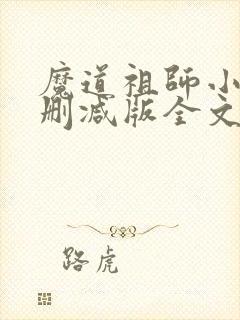 魔道祖师小
删减版全文
路虎